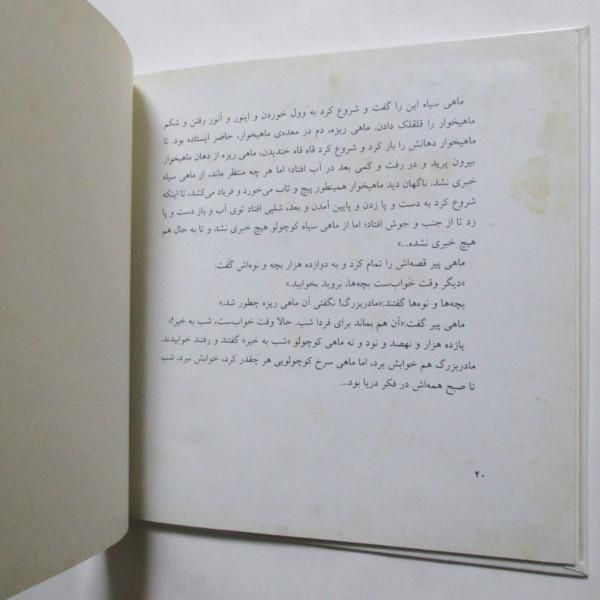 ماهی سیاه این را گفت و شروع کرد به وول خوردن و اینور و آنور رفتن و شکم
ماهیخوار را قلقلک دادن. ماهی ریزه، دم در معده‌ی ماهیخوار، حاضر ایستاده بود. تا
ماهیخوار دهانش را باز کرد و شروع کرد قاه قاه خندیدن، ماهی ریزه از دهان ماهیخوار
بیرون پرید و در رفت و کمی بعد در آب افتاد؛ اما هر چه منتظر ماند، از ماهی سیاه
خبری نشد. ناگهان دید ماهیخوار همینطور پیچ و تاب می‌خورد و فریاد می‌کشد، تا اینکه
شروع کرد به دست و پا زدن و پایین آمدن و بعد، شلپی افتاد توی آب و باز دست و پا
زد تا از جنب و جوش افتاد؛ اما از ماهی سیاه کوچولو هیچ خبری نشد و تا به حال هم
هیچ خبری نشده...»
ماهی پیر قصه‌اش را تمام کرد و به دوازده هزار بچه و نوه‌اش گفت:
«دیگر وقت خواب‌ست بچه‌ها، بروید بخوابید.»
بچه‌ها و نوه‌ها گفتند:«مادربزرگ! نگفتی آن ماهی ریزه چطور شد.»
ماهی پیر گفت:«آن هم بماند برای فردا شب. حالا وقت خواب‌ست، شب به خیر!»
یازده هزار و نهصد و نود و نه ماهی کوچولو «شب به خیر» گفتند و رفتند خوابیدند
مادربزرگ هم خوابش برد، اما ماهی سرخ کوچولویی هر چقدر کرد، خوابش نبرد، شب
تا صبح همه‌اش در فکر دریا بود...
۴۰